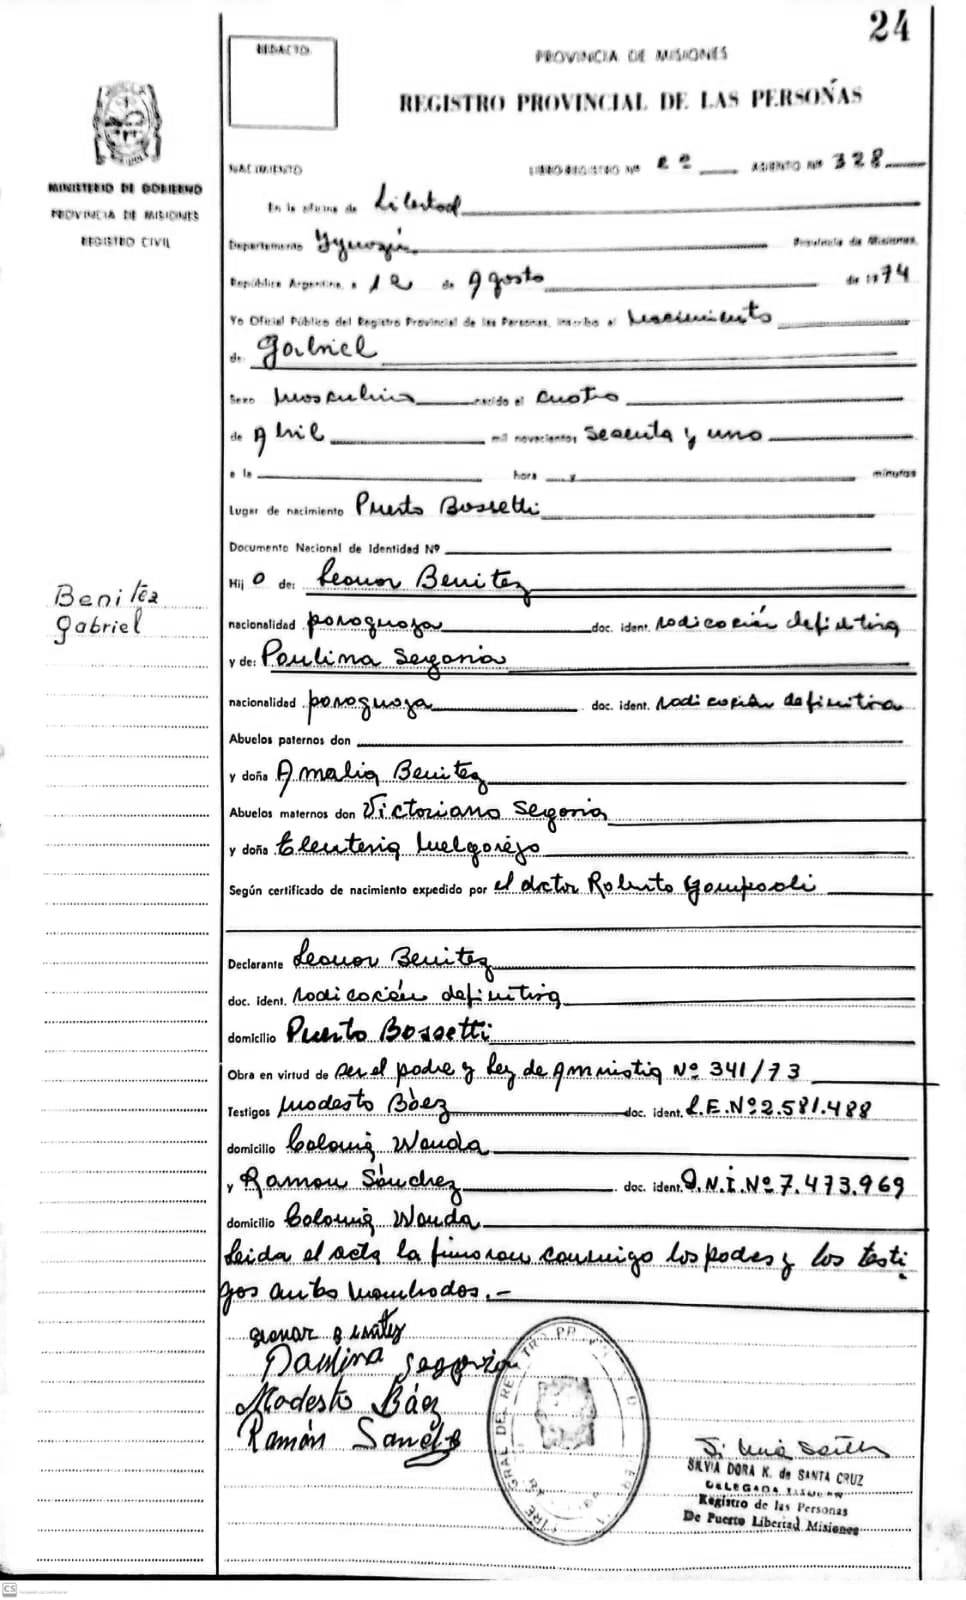 24
REDACTO
PROVINCIA DE MISIONES
REGISTRO PROVINCIAL DE LAS PERSOÑAS
MINISTERIO DE GOBIERNO
PROVINCIA DE MISIONES
REGISTRO CIVIL
NACIMIENTO LIBRO REGISTRO Nº 2º ASIENTO Nº 328
En la oficina de Libertad
Departamento Yguazú Provincia de Misiones,
República Argentina, a 12 de Agosto de 1974
Yo Oficial Público del Registro Provincial de las Personas, inscribo el Nacimiento
de Gabriel
Sexo Masculino nacido el cuatro
de Abril mil novecientos sesenta y uno
a la hora y minutos
Lugar de nacimiento Puerto Bossetti
Documento Nacional de Identidad Nº
Hij o de: Leonor Benitez
Benitez
Gabriel
nacionalidad paraguaya doc. ident. radicación definitiva
y de: Paulina Segovia
nacionalidad paraguaya doc. ident. radicación definitiva
Abuelos paternos don
y doña Amalia Benitez
Abuelos maternos don Victoriano Segovia
y doña Eleuteria Melgarejo
Según certificado de nacimiento expedido por el doctor Roberto
Declarante Leonor Benitez
doc. ident. radicación definitiva
domicilio Puerto Bossetti
Obra en virtud de ser el padre y Ley de Amnistia Nº 341/73
Testigos Modesto Báez doc. ident. L.E.Nº 2.581.488
domicilio Colonia Wanda
y Ramon Sánchez doc. ident. D.N.I.Nº 7.473.969
domicilio Colonia Wanda
Leida el acta la firmaron conmigo los padres y los testi
gos antes nombrados.-
Paulina Segovia
Modesto Báez
Ramón Sanchez
SILVIA DORA K. de SANTA CRUZ
DELEGADA TITULAR
Registro de las Personas
De Puerto Libertad Misiones
CS